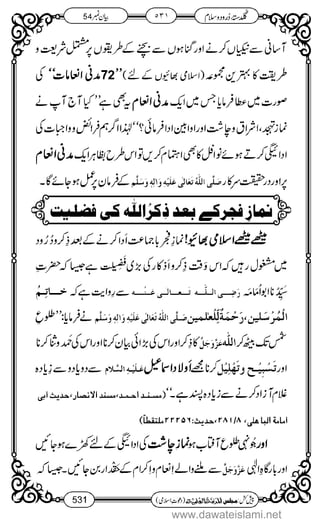 گلدستہ دُرود و سلام ٥٣١ بیان نمبر 54
آسانی سے نیکیاں کرنے اور گناہوں سے بچنے کے طریقوں پر مشتمل شریعت و
طریقت کا بہترین مجموعہ (اسلامی بھائیوں کے لئے) ”72 مدنی انعامات“ کی
صورت میں عطا فرمایا جس میں ایک مدنی انعام یہ بھی ہے ”کیا آج آپ نے
نماز تہجد، اشراق و چاشت اور اوابین ادا فرمائی؟“ لہٰذا اگر ہم فرائض و واجبات کی
ادائیگی کرتے ہوئے نوافل کا بھی اہتمام کریں تو اس طرح بظاہر ایک مدنی انعام
پر اور در حقیقت سرکار صلَّی اللہُ تَعَالٰی عَلَیْہِ وَاٰلِہٖ وَسَلَّم کے فرمان پر عمل ہو جائے گا۔
نمازِ فجر کے بعد ذِکرُ اللہ کی فضیلت
میٹھے میٹھے اسلامی بھائیو! نمازِ فجر باجماعت ادا کرنے کے بعد ذِکر و دُرُود
میں مشغول رہیں کہ اس وَقت ذِکر و اَذکار کی بڑی فضیلت ہے جیسا کہ حضرتِ
سیِّدُنا ابو اُمامَہ رَضِیَ اللہ تَعَالٰی عَنْہ سے روایت ہے کہ خَاتِمُ
الْمُرْسَلین، رَحْمَۃٌ لِّلْعٰلمین صَلَّی اللہُ تَعَالٰی عَلَیْہِ وَاٰلِہٖ وَسَلَّم نے فرمایا: ”طلوعِ
شمس تک بیٹھ کر اللہ عَزَّوَجَلَّ کا ذِکر اور اس کی بڑائی بیان کرنا اور اس کی حمد و ثنا کرنا
اور تسبیح و تَہلِیل کرنا مجھے اولادِ اسماعیل عَلَیْہِ السَّلَام سے دو یا دو سے زیادہ
غلام آزاد کرنے سے زیادہ پسند ہے۔“ (مسند احمد، مسند الانصار، حدیث ابی
امامۃ الباہلی، ٣٨١/٨، حدیث: ٢٢٢٥٦ ملتقطاً)
اور جونہی طلوعِ آفتاب ہو نمازِ چاشت کی ادائیگی کے لئے کھڑے ہو جائیں
اور بارگاہِ الٰہی عَزَّوَجَلَّ سے ملنے والے انعام و اکرام کے حقدار بن جائیں۔ جیسا کہ
531
www.dawateislami.net